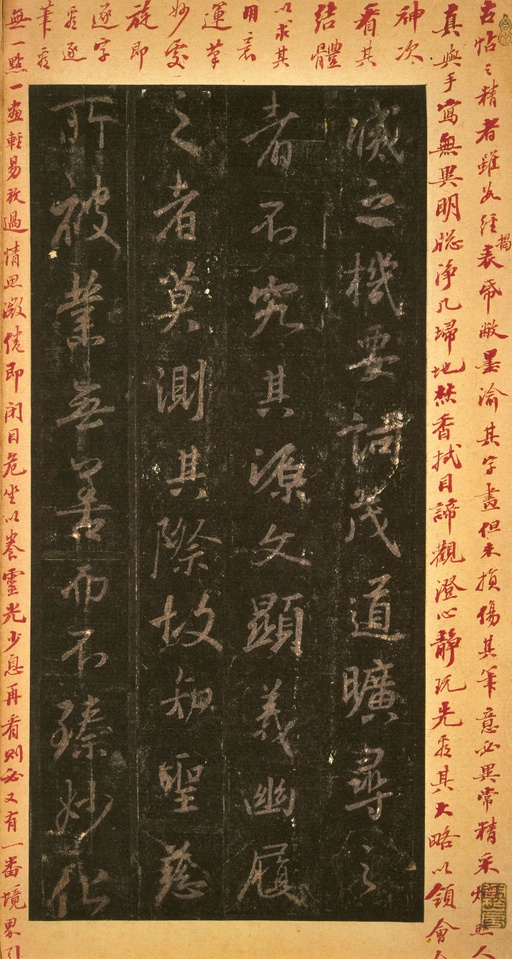 古帖之精者雖久經揭表帋敝墨渝其字畫但未損傷其筆意必異常精采煥照人
真與手寫無異明牎淨几掃地焚香拭目諦觀澄心静玩先看其大略以領會
神次
看其
結體
以求其
用意
運筆
妙處
旋即
逐字
看逐
筆看
無一點一畫輕易放過情思微倦即閉目危坐以養靈光少息再看則必又有一番境界引
滅之機要詞茂道曠尋之
者不究其源文顯義幽履
之者莫測其際故知聖慈
所被業無善而不臻妙化